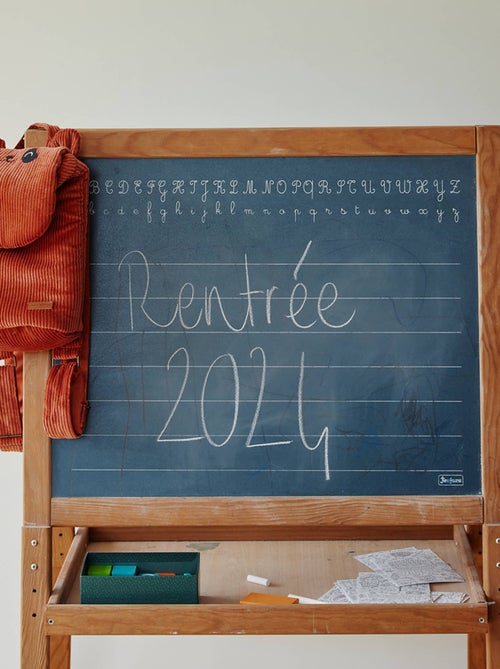 B C D E F G H I J K L M N O P Q R S T U V W X Y Z
b c d e f g h i j k l m n o p q r s t u v w x y z
Rentrée
2024